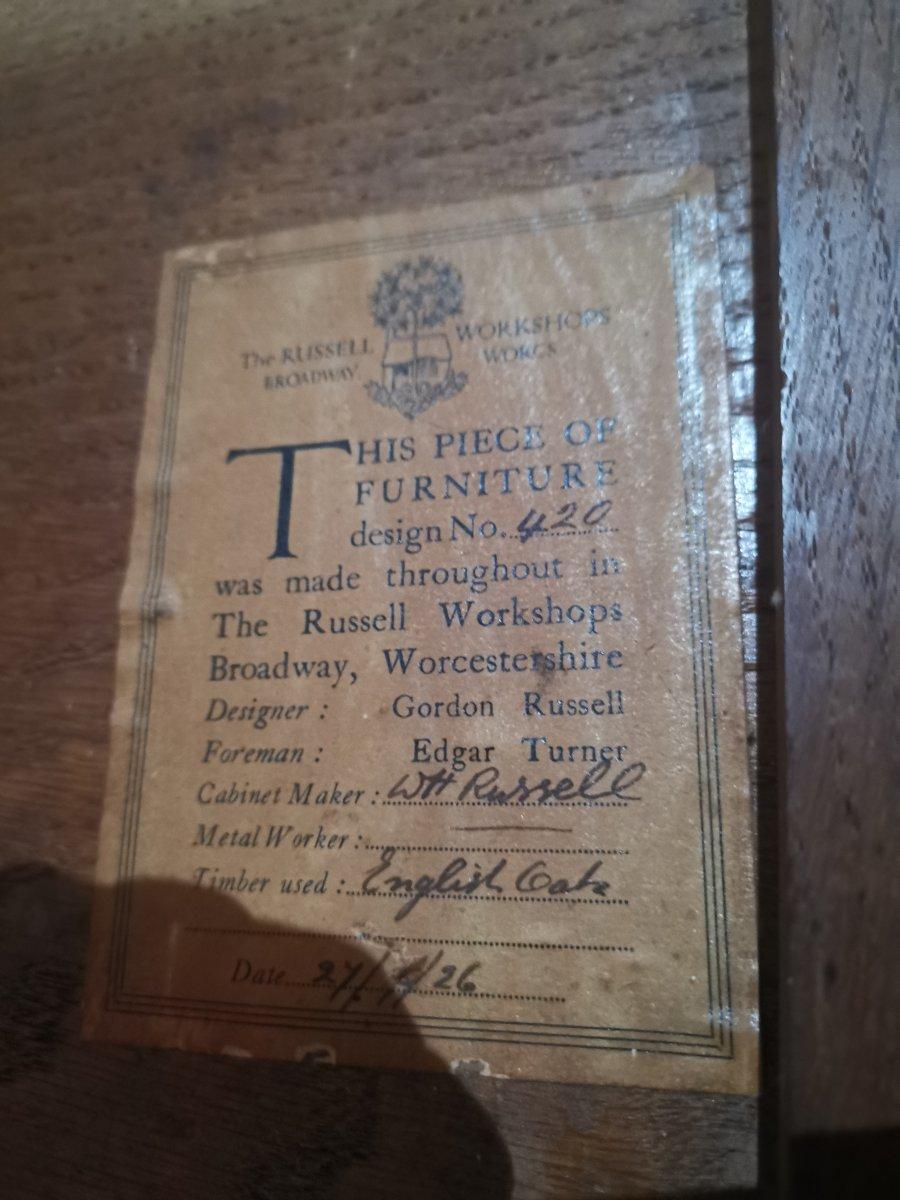 The RUSSELL WORKSHOPS
BROADWAY. WORCS
THIS PIECE OF
FURNITURE
design No. 420
was made throughout in
The Russell Workshops
Broadway, Worcestershire
Designer : Gordon Russell
Foreman : Edgar Turner
Cabinet Maker : WH Russell
Metal Worker :
Timber used : English Oak
Date 27/ /26